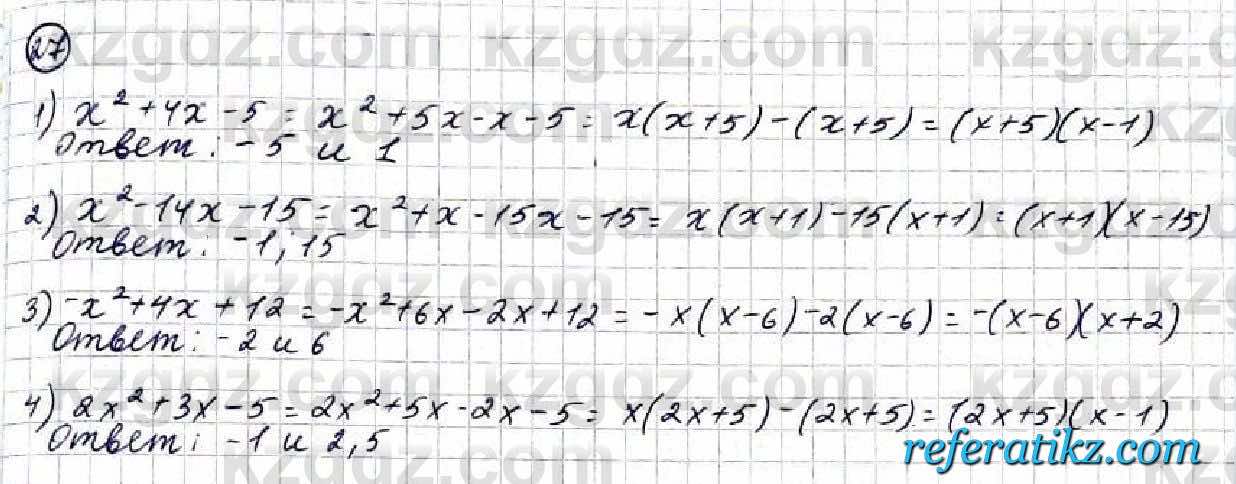 kzgdz.com kzgdz.com kzgdz.com
27
1) x² + 4x - 5 = x² + 5x - x - 5 = x(x+5) - (x+5) = (x+5)(x-1)
Ответ: -5 и 1
2) x² - 14x - 15 = x² + x - 15x - 15 = x(x+1) - 15(x+1) = (x+1)(x-15)
Ответ: -1; 15
3) -x² + 4x + 12 = -x² + 6x - 2x + 12 = -x(x-6) - 2(x-6) = -(x-6)(x+2)
Ответ: -2 и 6
4) 2x² + 3x - 5 = 2x² + 5x - 2x - 5 = x(2x+5) - (2x+5) = (2x+5)(x-1)
Ответ: -1 и 2,5
referatikz.com